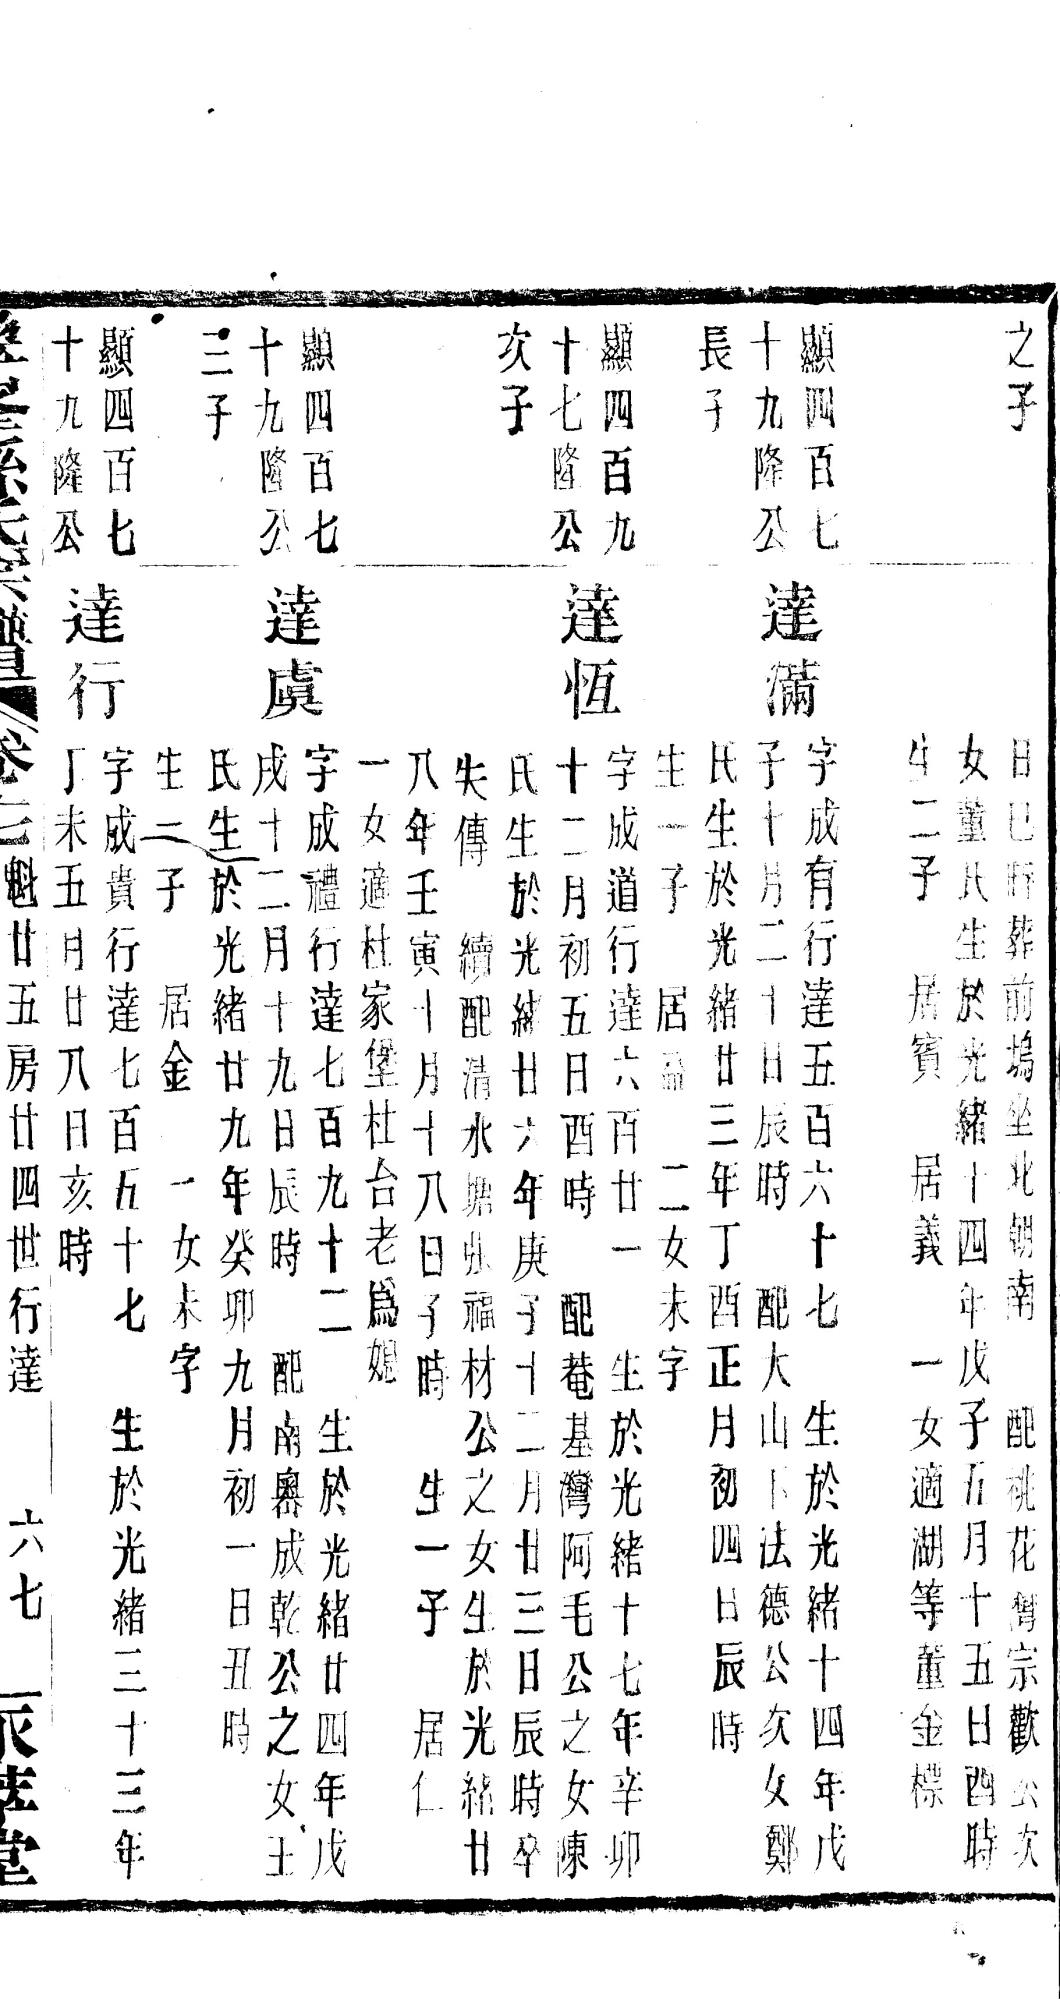 之子
日巳時葬前塢坐北朝南　配桃花灣宗歡公次
女董氏生於光緒十四年戊子五月十五日酉時
生二子　居賓　居義　一女適湖等董金標
顯四百七
十九隆公
長子
達滿
字成有行達五百六十七　生於光緒十四年戊
子十月二十日辰時　配大山下法德公次女鄭
氏生於光緒廿三年丁酉正月初四日辰時
生一子　居　二女未字
顯四百九
十七隆公
次子
達恆
字成道行達六百廿一　生於光緒十七年辛卯
十二月初五日酉時　配菴基灣阿毛公之女陳
氏生於光緒廿六年庚子十二月廿三日辰時卒
失傳　續配清水塘張福材公之女生於光緒廿
八年壬寅十月十八日子時　生一子　居仁
一女適杜家堡杜台老爲媳
顯四百七
十九隆公
三子
達虞
字成禮行達七百九十二　生於光緒廿四年戊
戌十二月十九日辰時　配南嶴成乾公之女王
氏生於光緒廿九年癸卯九月初一日丑時
生二子　居金　一女未字
顯四百七
十九隆公
達行
字成貴行達七百五十七　生於光緒三十三年
丁未五月廿八日亥時
孫氏宗譜　卷七　魁廿五房廿四世行達　六七　堂